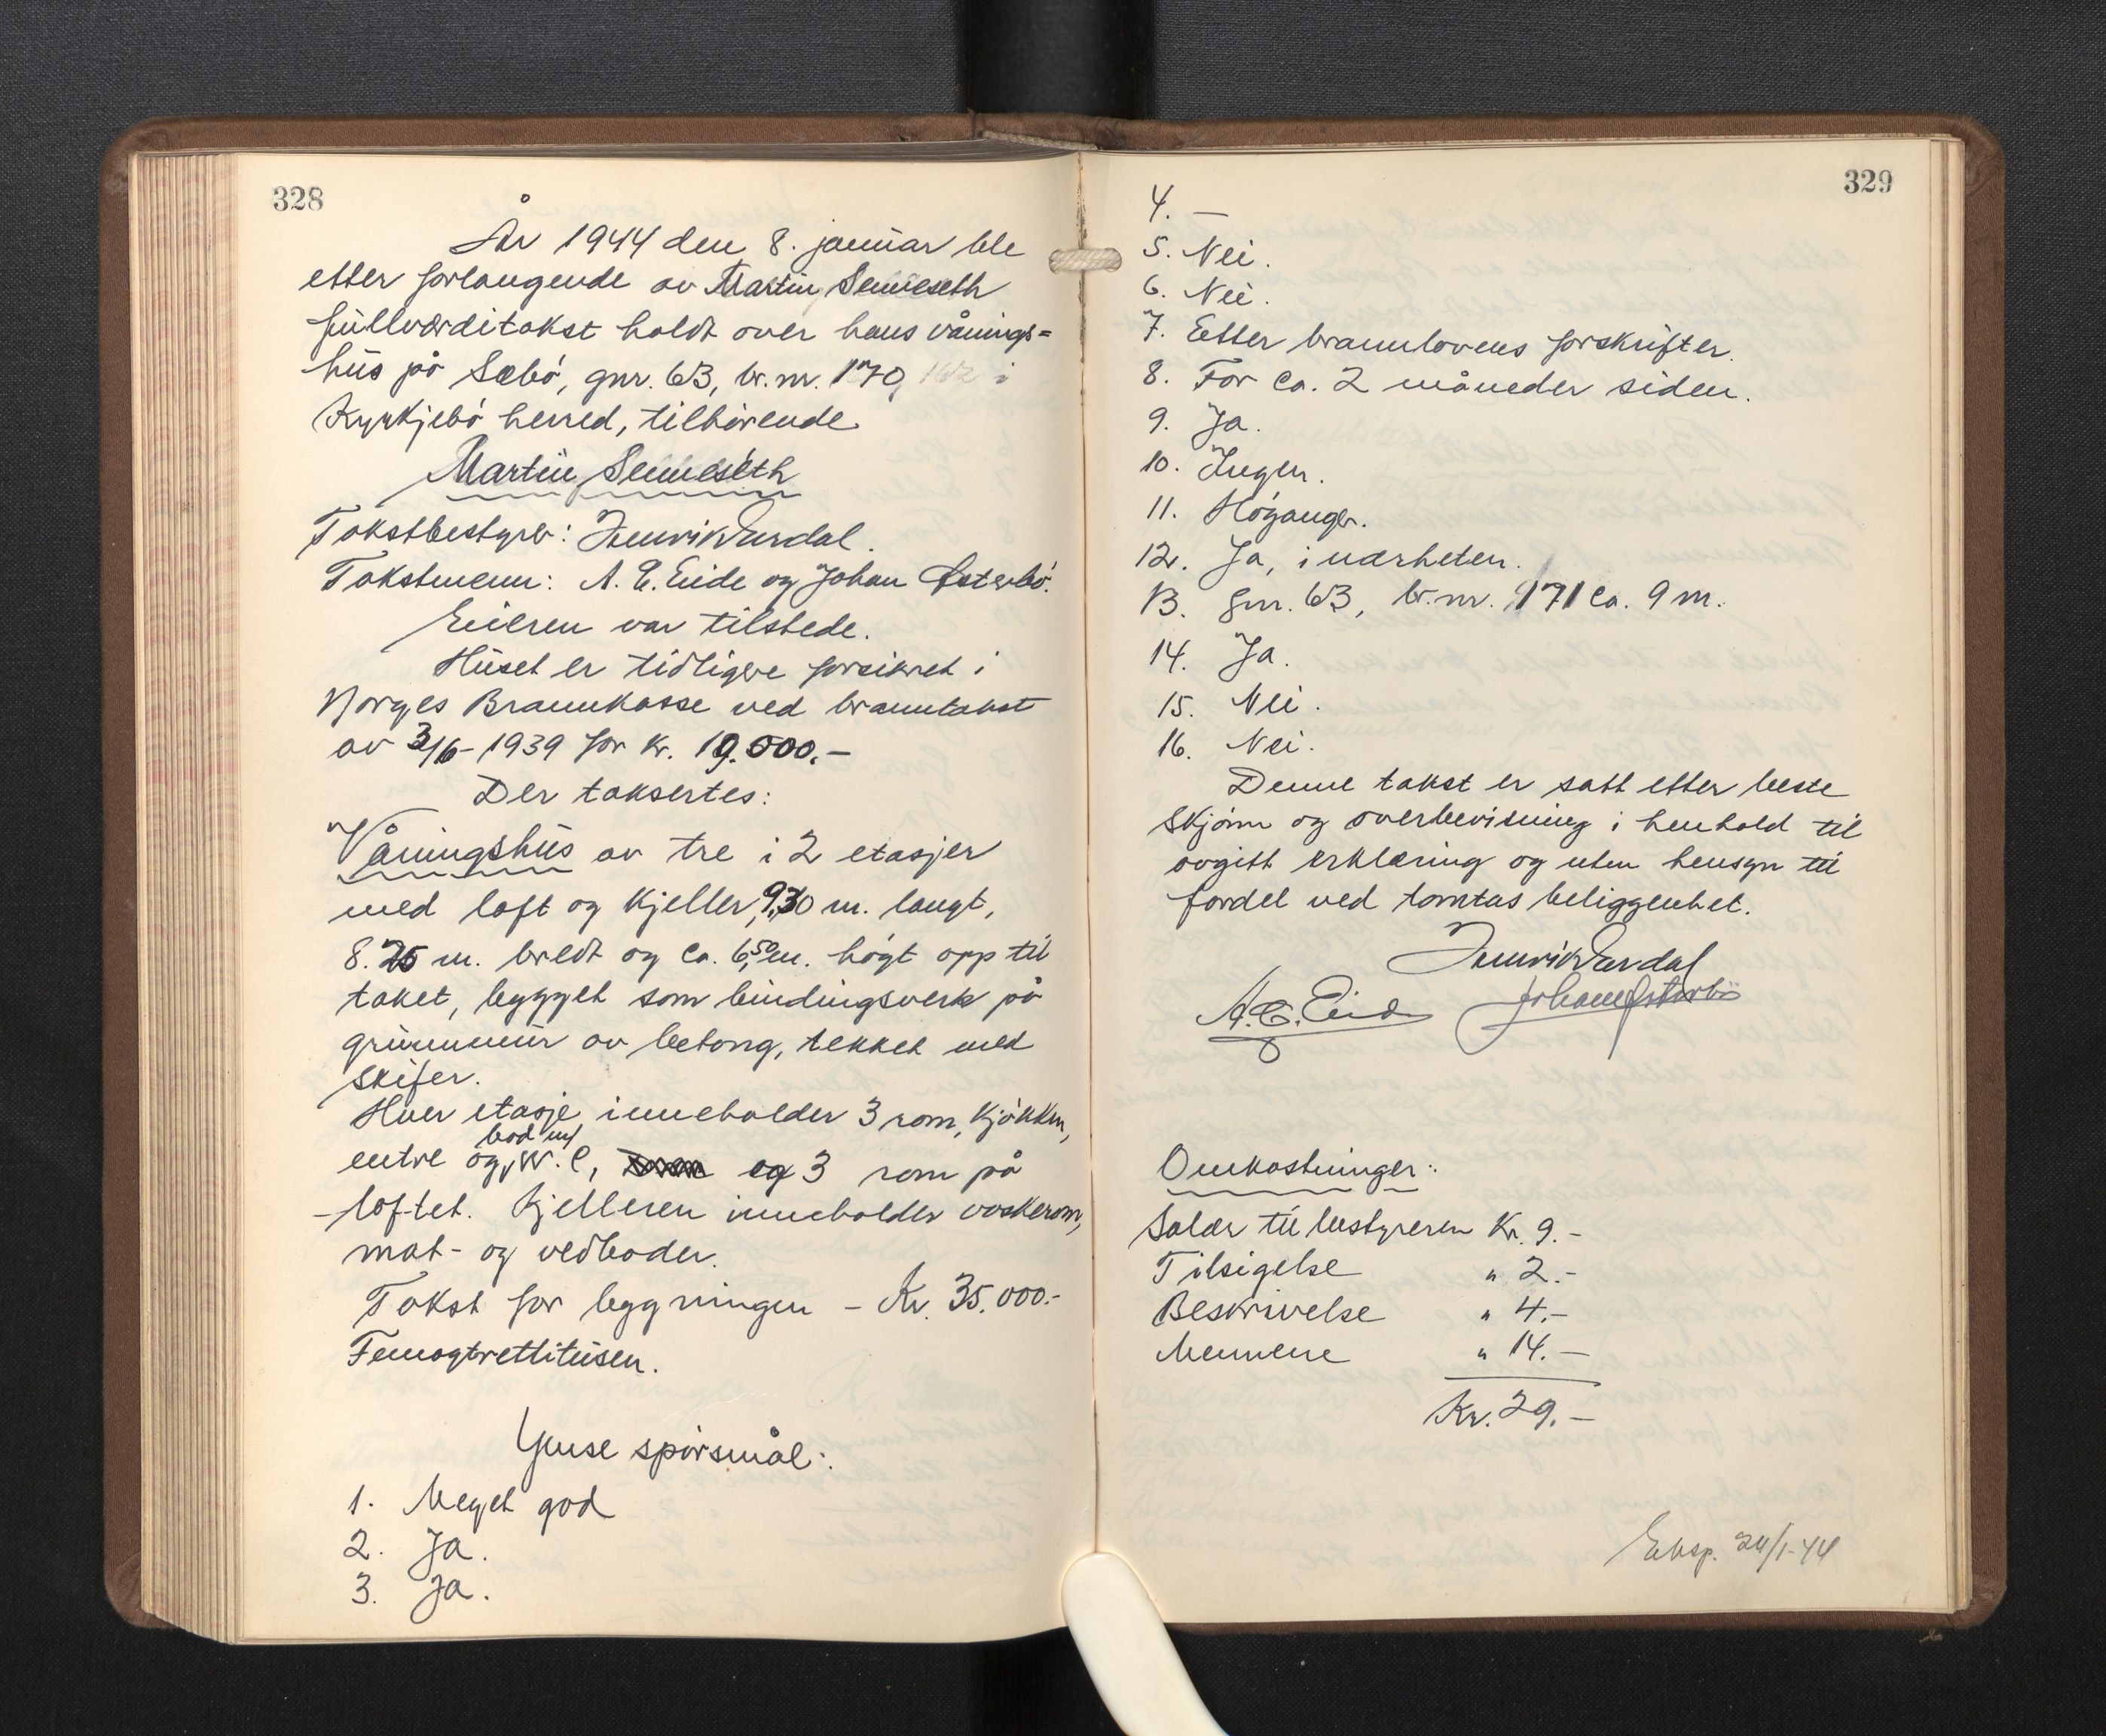 328
År 1944 den 8. januar ble
etter forlangende av Martin Senneseth
fullverditakst holdt over hans vånings=
hus på Sæbø, gnr. 63, br.nr. 170, i
Kyrkjebø herred, tilhørende
Martin Senneseth
Takstbestyrer: Henrik Erdal.
Takstmenn: A. E. Eide og Johan Østerbø.
Eieren var tilstede.
Huset er tidligere forsikret i
Norges Brannkasse ved branntakst
av 3/6-1939 for kr. 19.000.-
Der taksertes:
Våningshus av tre i 2 etasjer
med loft og kjeller, 9,30 m. langt,
8.25 m. bredt og ca. 6,50 m. høgt opp til
taket, bygget som bindingsverk på
grunnmur av betong, tekket med
skifer.
Hver etasje inneholder 3 rom, kjøkken,
bod m/
entre og W.C, og 3 rom på
loftet. Kjelleren inneholder vaskerom,
mat- og vedboder.
Takst for bygningen - Kr. 35.000.-
Femogtrettitusen.
Ymse spørsmål:
1. Meget god
2. Ja.
3. Ja.
329
4. —
5. Nei.
6. Nei.
7. Etter brannlovens forskrifter.
8. For ca. 2 måneder siden.
9. Ja.
10. Ingen.
11. Høyanger.
12. Ja, i nærheten.
13. gnr. 63, br.nr. 171 ca. 9 m.
14. Ja.
15. Nei.
16. Nei.
Denne takst er satt etter beste
skjønn og overbevisning i henhold til
avgitt erklæring og uten hensyn til
fordel ved tomtas beliggenhet.
Henrik Erdal
A. E. Eide Johan Østerbø
Omkostninger:
Salær til bestyreren Kr. 9.-
Tilsigelse " 2.-
Beskrivelse " 4.-
Mennene " 14.-
Kr. 29.-
Eksp. 24/1-44